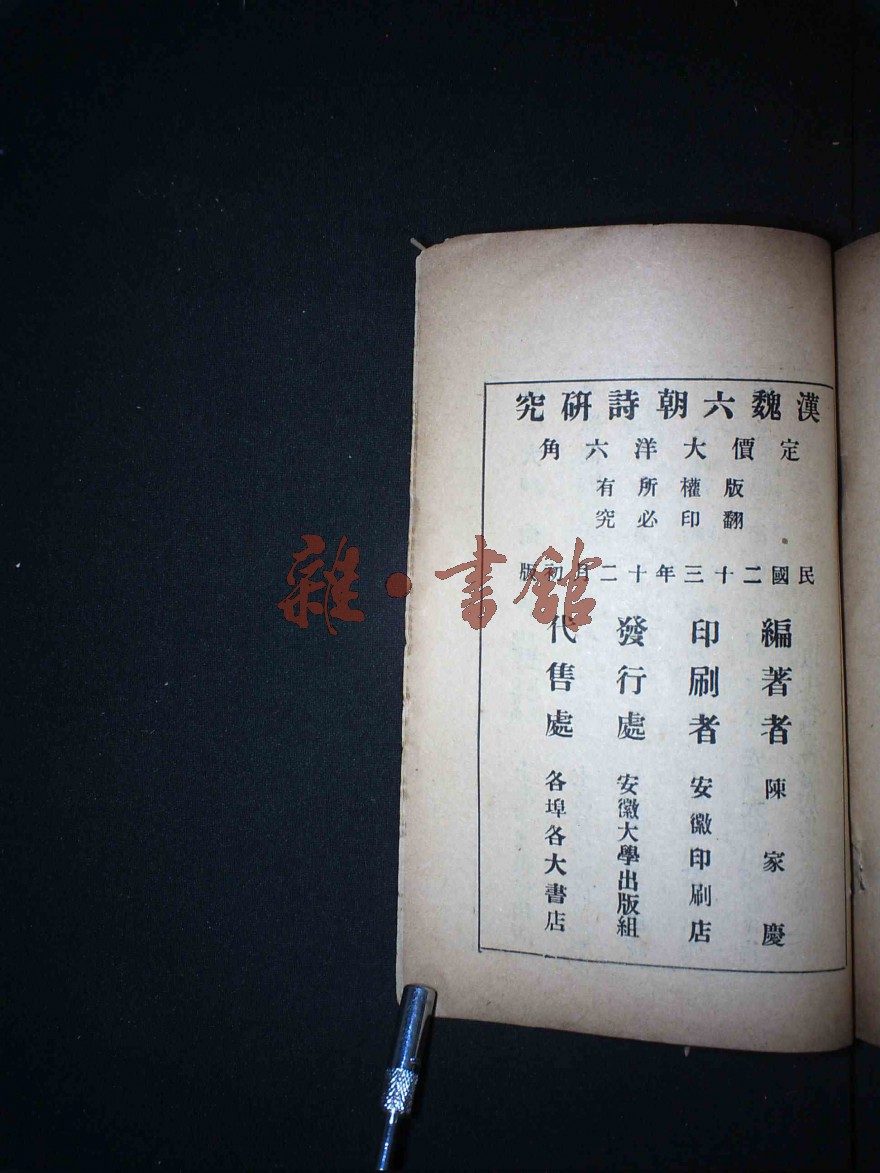 漢魏六朝詩研究
定價大洋六角
版權所有
翻印必究
民國二十三年十二月初版
編著者 陳家慶
印刷者 安徽印刷店
發行處 安徽大學出版組
代售處 各埠各大書店
雜·書館